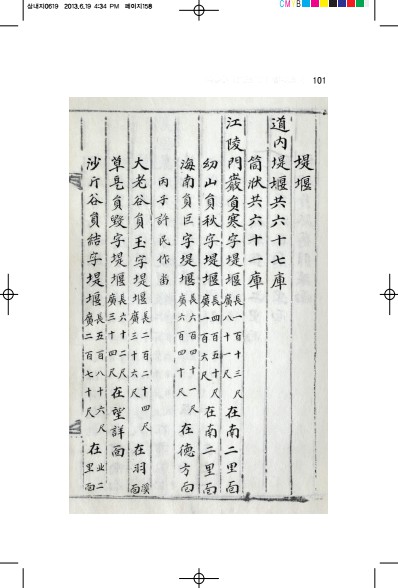 삼내지0619 2013.6.19 4:34 PM 페이지158
CM
101
堤堰
道内堤堰共六十七庫
筒洑共六十一庫
江陵門巖員寒字堤堰長一百十三尺廣八十一尺在南二里面
幼山員秋字堤堰長四百五十尺廣一百六尺在南二里面
海南員巨字堤堰長六百四十一尺廣六百四十尺在德方面
丙子許民作畓
大老谷員玉字堤堰長二百二十四尺廣三十六尺在羽溪面
草皂員毀字堤堰長六十二尺廣三十四尺在望詳面
沙斤谷員結字堤堰長五百八十六尺廣二百七十尺在北二里面